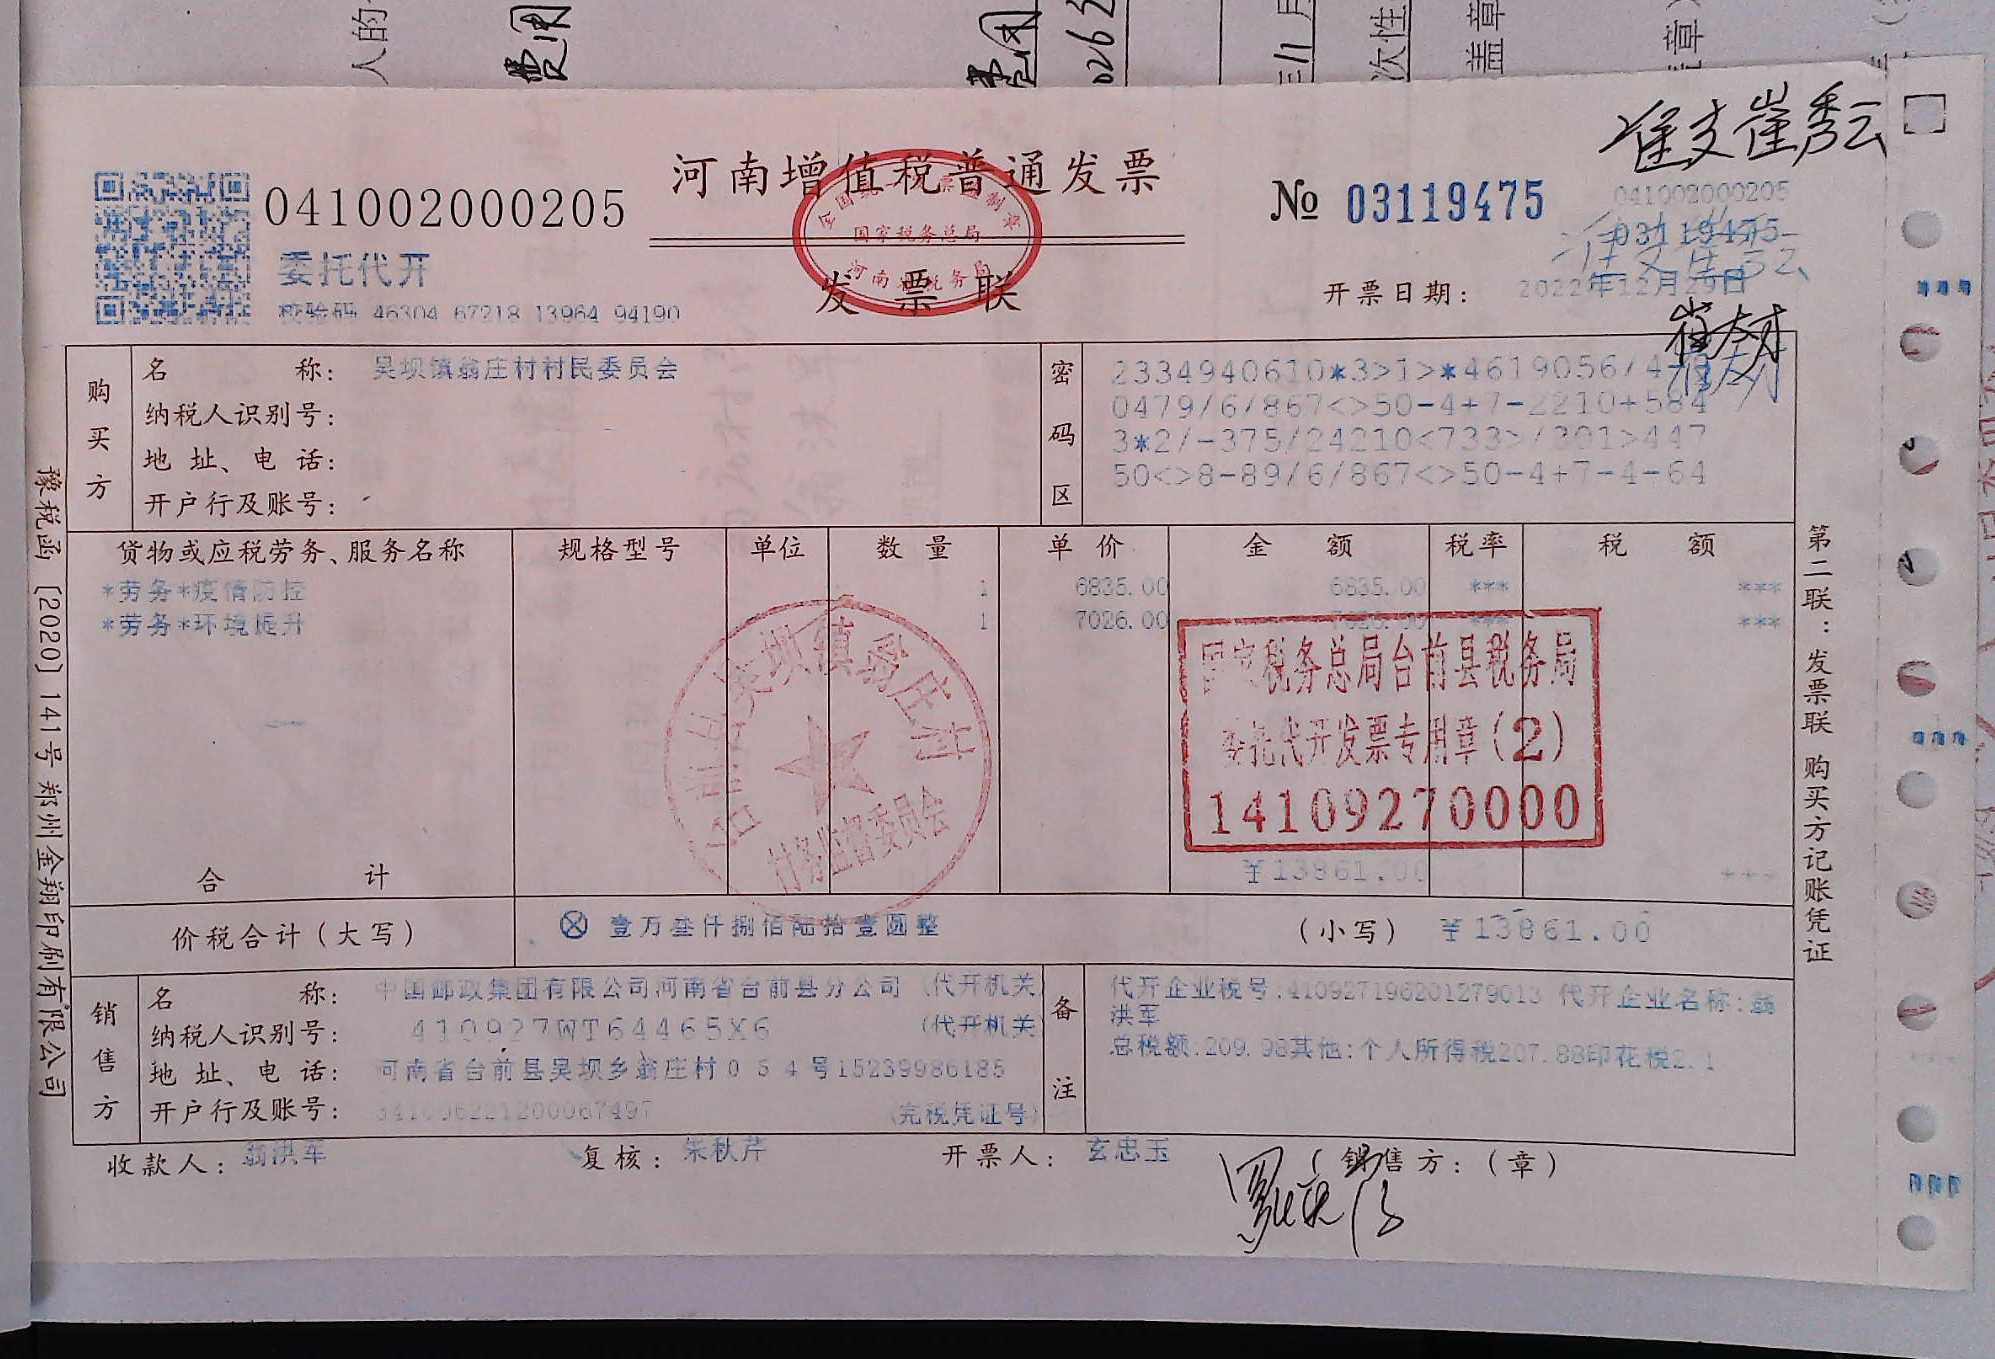 人的
费用
费用
0262
年11月
次性
盖章
章）
河南增值税普通发票
发票联
全国统一发票监制章
国家税务总局
河南省税务局
041002000205
委托代开
校验码 46304 67218 13964 94190
№ 03119475
准支崔秀云
041002000205
03119475
开票日期： 2022年12月29日
购买方
名称： 吴坝镇翁庄村村民委员会
纳税人识别号：
地址、电话：
开户行及账号：
密码区
2334940610*3>1>*4619056/4
0479/6/867<>50-4+7-2210+584
3*2/-375/24210<733>/301>447
50<>8-89/6/867<>50-4+7-4-64
货物或应税劳务、服务名称 规格型号 单位 数量 单价 金额 税率 税额
*劳务*疫情防控 1 6835.00 6835.00 *** ***
*劳务*环境提升 1 7026.00 7026.00 *** ***
台前县吴坝镇翁庄村
村务监督委员会
国家税务总局台前县税务局
委托代开发票专用章(2)
14109270000
合计 ¥13861.00 ***
价税合计（大写） ⊗ 壹万叁仟捌佰陆拾壹圆整 （小写） ¥13861.00
销售方
名称： 中国邮政集团有限公司河南省台前县分公司 (代开机关)
纳税人识别号： 410927WT64465X6 (代开机关
地址、电话： 河南省台前县吴坝乡翁庄村054号15239986185
开户行及账号： 341096221200067497 (完税凭证号)
备注
代开企业税号:410927196201279013 代开企业名称:翁
洪军
总税额:209.98其他:个人所得税207.88印花税2.1
收款人： 翁洪军 复核： 朱秋芹 开票人： 玄忠玉 销售方：（章）
豫税函〔2020〕141号郑州金翔印刷有限公司
第二联：发票联 购买方记账凭证